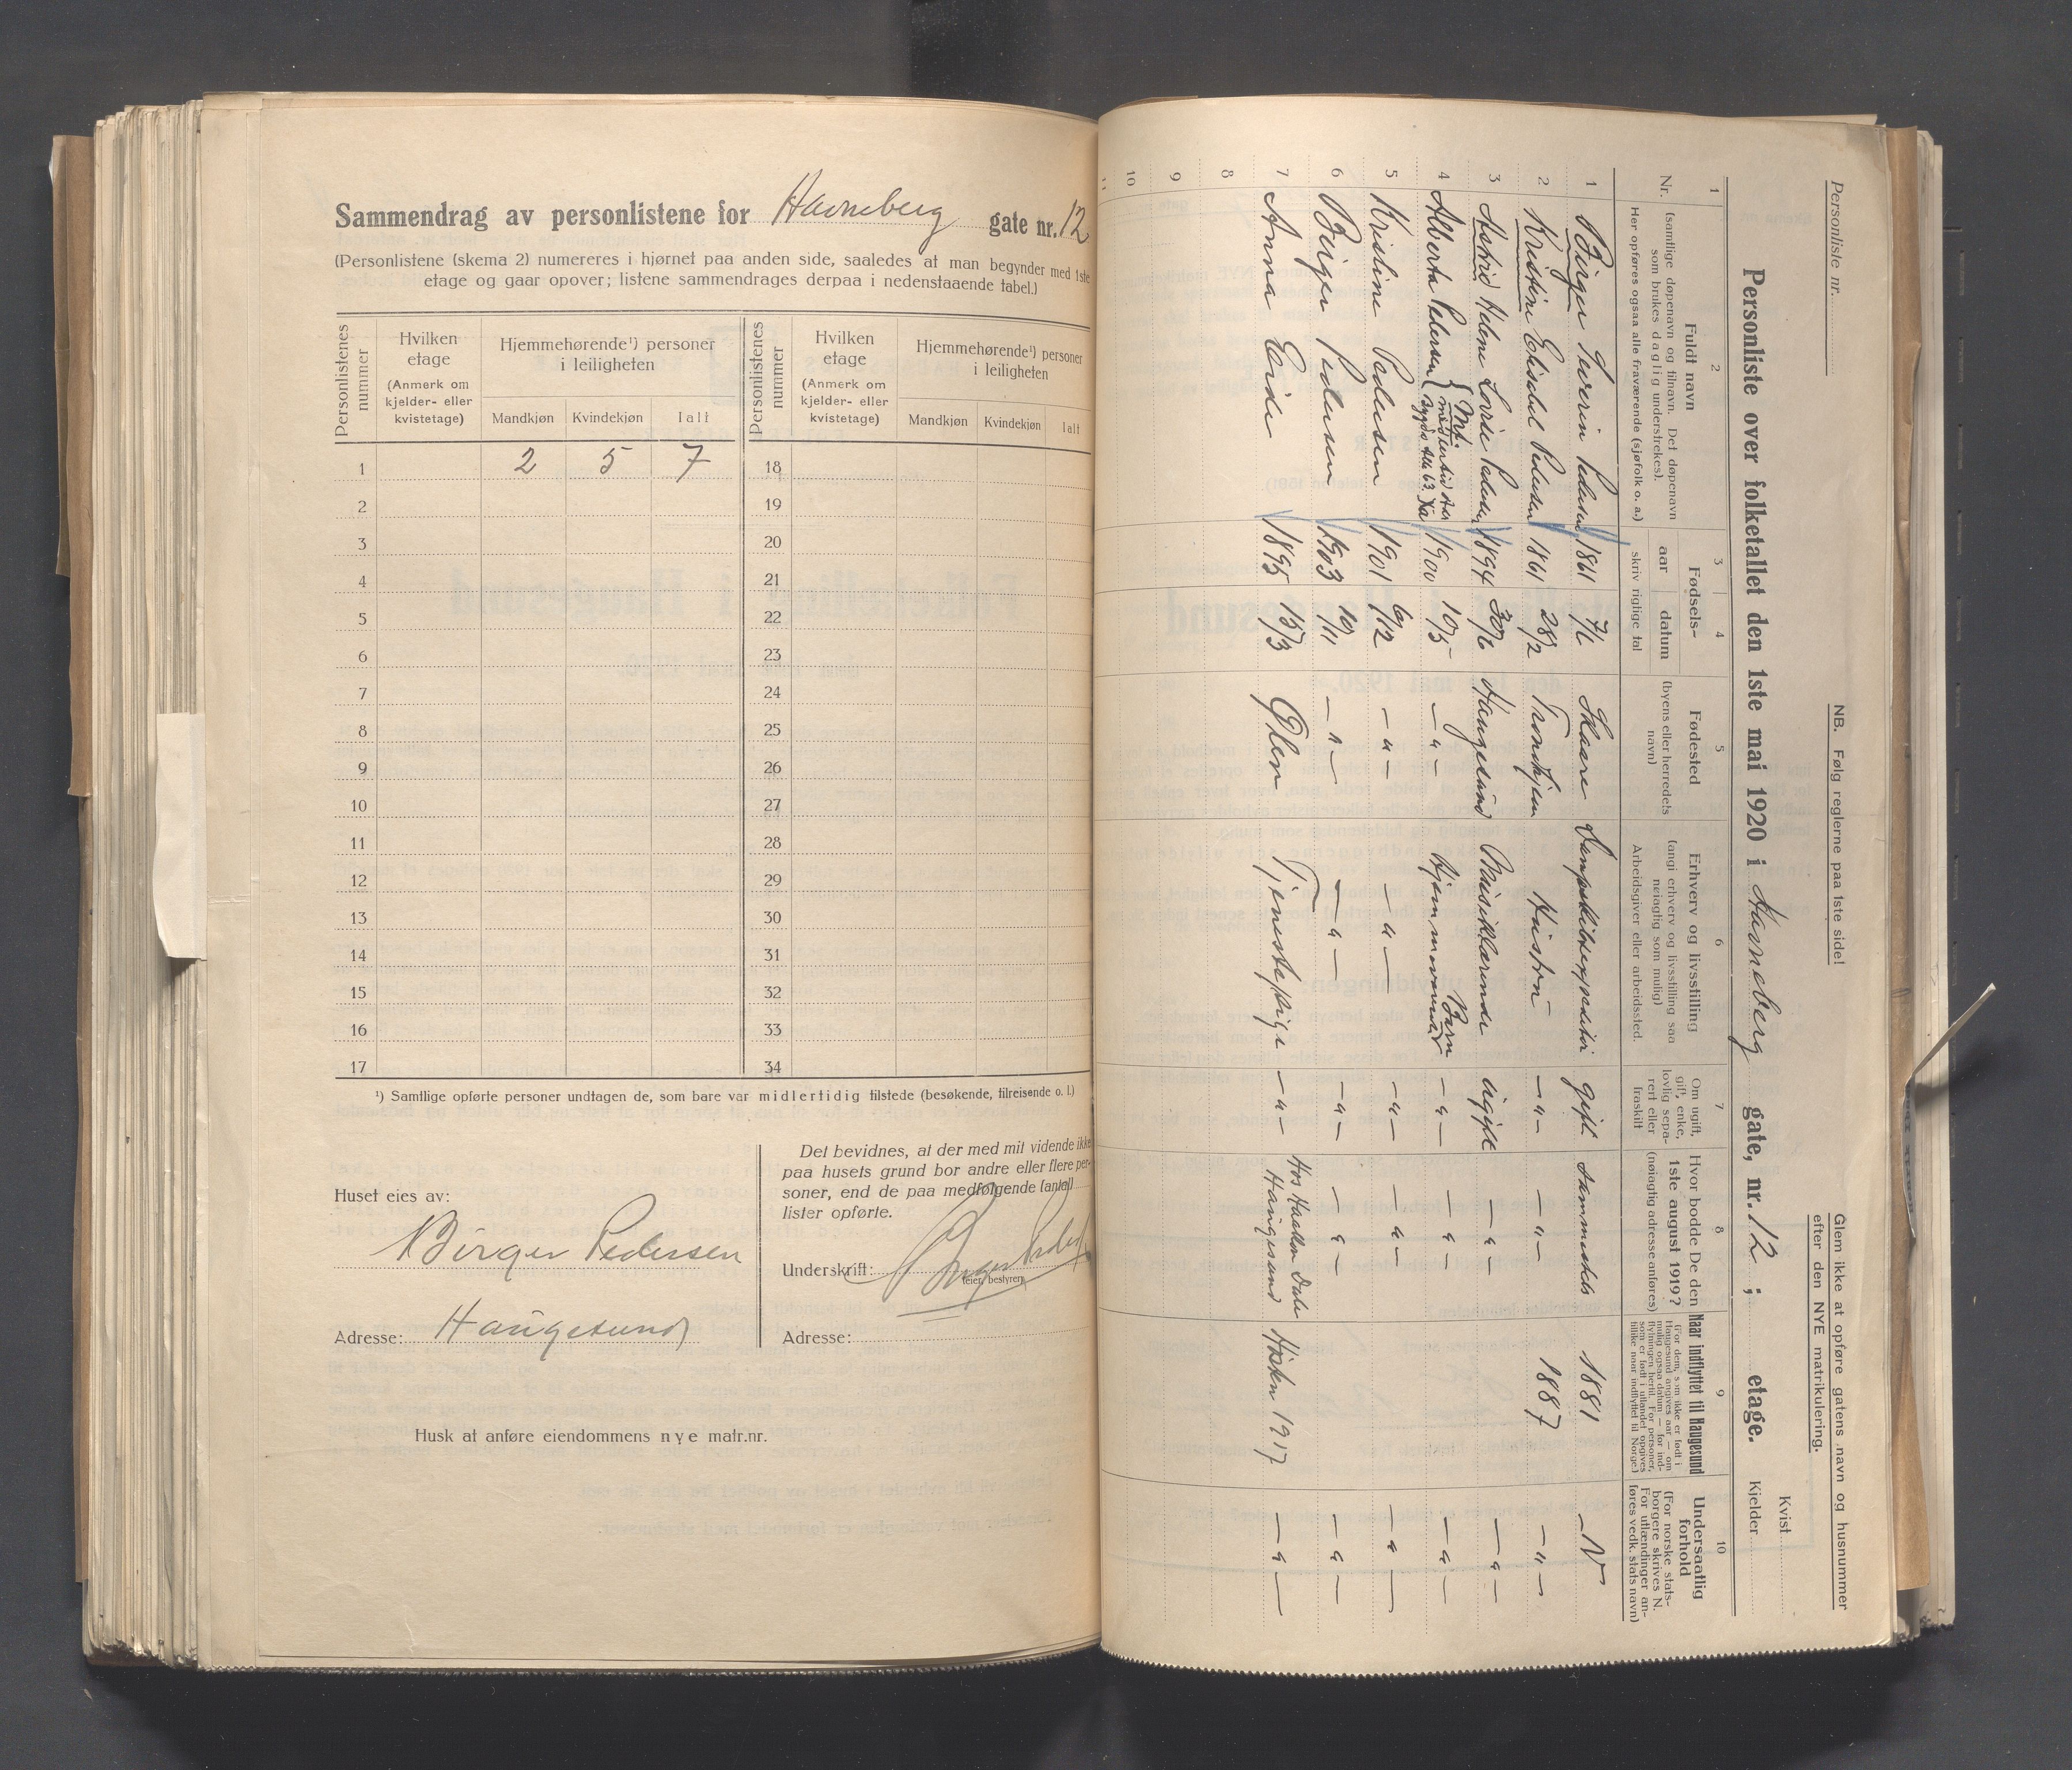 Sammendrag av personlistene for Havneberg gate nr. 12
(Personlistene (skema 2) numereres i hjørnet paa anden side, saaledes at man begynder med 1ste
etage og gaar opover; listene sammendrages derpaa i nedenstaaende tabel.)
Personlistenes nummer
Hvilken etage
(Anmerk om kjelder- eller kvistetage)
Hjemmehørende¹) personer i leiligheten
Mandkjøn Kvindekjøn Ialt
Personlistenes nummer
Hvilken etage
(Anmerk om kjelder- eller kvistetage)
Hjemmehørende¹) personer i leiligheten
Mandkjøn Kvindekjøn Ialt
1 2 5 7 18
2 19
3 20
4 21
5 22
6 23
7 24
8 25
9 26
10 27
11 28
12 29
13 30
14 31
15 32
16 33
17 34
¹) Samtlige opførte personer undtagen de, som bare var midlertidig tilstede (besøkende, tilreisende o. l.)
Huset eies av:
Birger Pedersen
Adresse: Haugesund
Det bevidnes, at der med mit vidende ikke
paa husets grund bor andre eller flere per-
soner, end de paa medfølgende (antal)
lister opførte.
Underskrift: Birger Peders
(eier, bestyrer)
Adresse:
Husk at anføre eiendommens nye matr.nr.
Personliste nr.
NB. Følg reglerne paa 1ste side!
Glem ikke at opføre gatens navn og husnummer
efter den NYE matrikulering.
Personliste over folketallet den 1ste mai 1920 i Havneberg gate, nr. 12 ; etage.
Kvist
Kjelder
1 2 3 4 5 6 7 8 9 10
Nr.
Fuldt navn
(samtlige døpenavn og tilnavn. Det døpenavn
som brukes daglig understrekes).
Her opføres ogsaa alle fraværende (sjøfolk o. a.)
Fødsels-
aar datum
skriv riglige tal
Fødested
(byens eller herredets
navn)
Erhverv og livsstilling
(angi erhverv og livsstilling saa
nøiagtig som mulig)
Arbeidsgiver eller arbeidssted.
Om ugift,
gift, enke,
lovlig sepa-
rert eller
fraskilt
Hvor bodde De den
1ste august 1919?
(nøiagtig adresse anføres)
Naar indflyttet til Haugesund
(For dem, som ikke er født i
Haugesund angives aar — om
mulig ogsaa datum — for ind-
flytningen hertil. For personer,
som er født i utlandet opgives
tillike naar indflyttet til Norge)
Undersaatlig
forhold
(For norske stats-
borgere skrives N.
For utlændinger an-
føres vedk. stats navn)
1 Birger Severin Pedersen 1861 7/6 Skaare Dampskibsexpeditør gift sammesteds 1881 N
2 Kristine Elisabet Pedersen 1861 28/2 Trondhjem Hustru — " — — " — 1887 — " —
3 Astrid Helene Lovise Pedersen 1894 30/6 Haugesund Musiklærerinde ugift — " — — " —
4 Alberta Pedersen 1900 10/5 — " — hjemmeværende Barn — " — — " — — " —
5 Kristine Pedersen 1901 6/12 — " — — " — — " — — " — — " —
6 Birger Pedersen 1903 19/11 — " — — " — — " — — " — — " —
7 Anna Eide 1895 15/3 Ølen Tjenestepige — " — Hos Dale Haugesund Høsten 1917 — " —
8
9
10
11